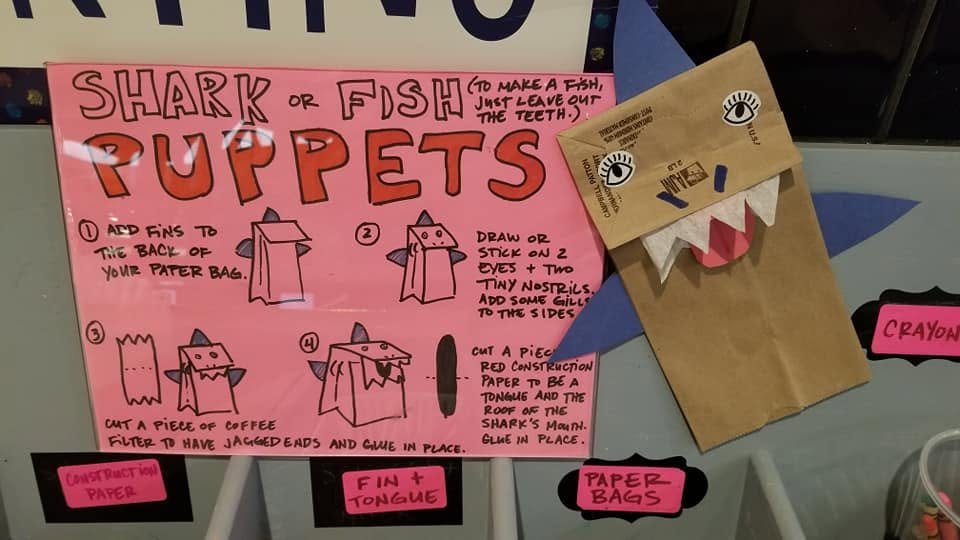 SHARK OR FISH (TO MAKE A FISH,
JUST LEAVE OUT
THE TEETH.)
PUPPETS
① ADD FINS TO
THE BACK OF
YOUR PAPER BAG.
②
DRAW OR
STICK ON 2
EYES + TWO
TINY NOSTRILS.
ADD SOME GILLS
TO THE SIDES
③
CUT A PIECE OF COFFEE
FILTER TO HAVE JAGGED ENDS AND GLUE IN PLACE.
④
CUT A PIEC
RED CONSTRUCTION
PAPER TO BE A
TONGUE AND THE
ROOF OF THE
SHARK'S MOUTH.
GLUE IN PLACE.
CONSTRUCTION
PAPER
FIN +
TONGUE
PAPER
BAGS
CRAYON
2 LB